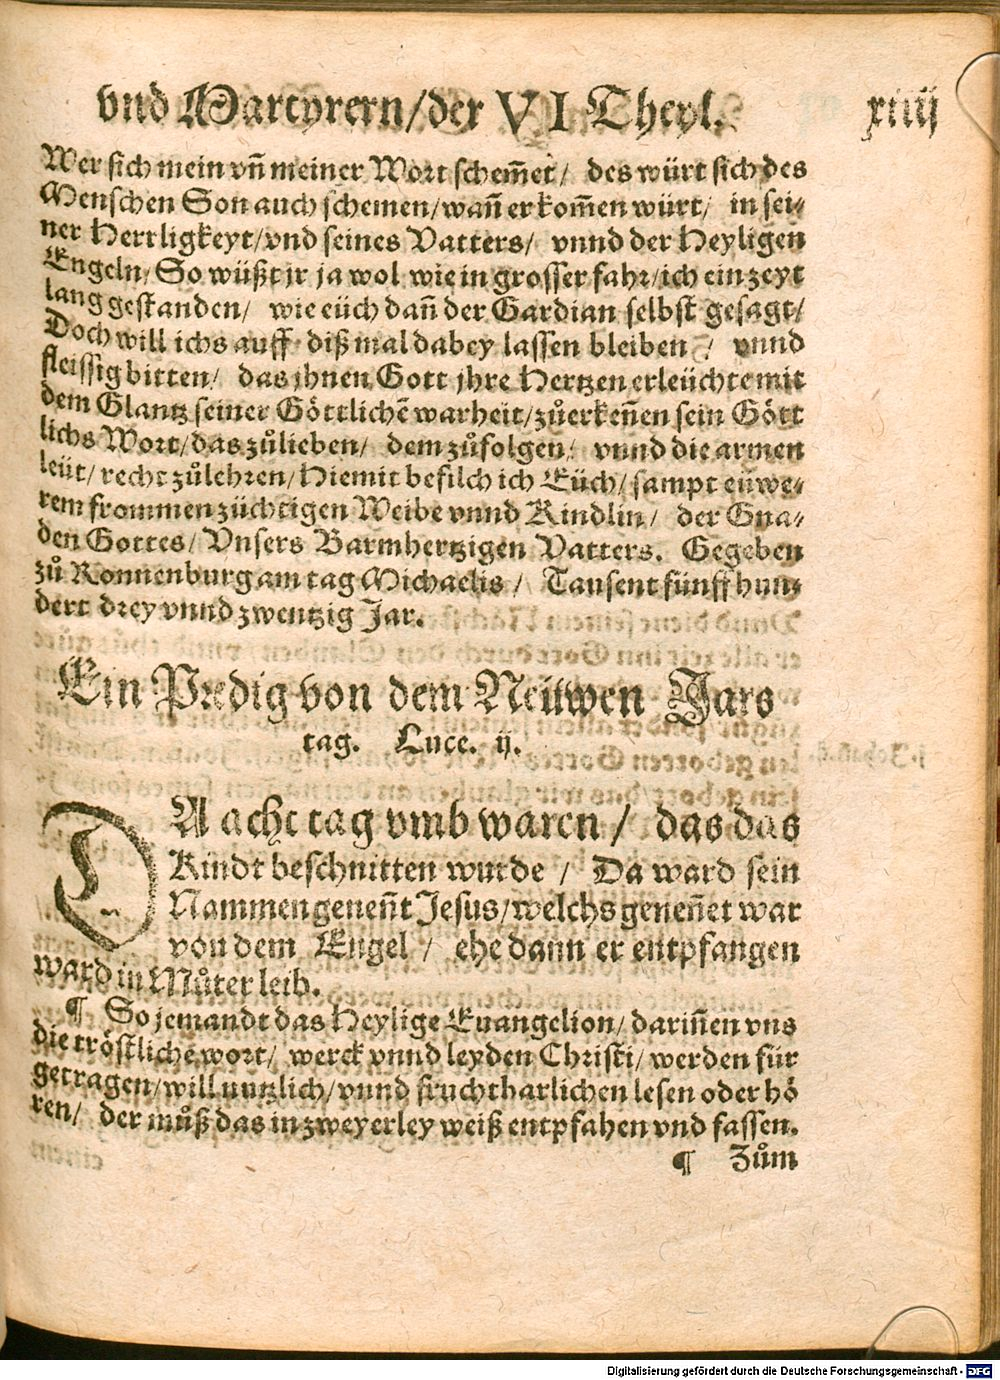 vnd Martyrern/der VI Theyl. xiiij
Wer sich mein vn̄ meiner Wort schem̄et/ des würt sich des
Menschen Son auch schemen/wan̄ er kom̄en würt/ in sei-
ner Herrligkeyt/vnd seines Vatters/ vnnd der Heyligen
Engeln/So wüßt jr ja wol wie in grosser fahr/ich ein zeyt
lang gestanden/ wie eüch dan̄ der Gardian selbst gesagt/
Doch will ichs auff diß mal dabey lassen bleiben / vnnd
fleissig bitten/ das jhnen Gott jhre Hertzen erleüchte mit
dem Glantz seiner Göttlichē warheit/zůerken̄en sein Gött
lichs Wort/das zůlieben/ dem zůfolgen/ vnnd die armen
leüt/ recht zůlehren/Hiemit befilch ich Eüch/sampt eüwe-
rem frommen züchtigen Weibe vnnd Kindlin/ der Gna-
den Gottes/Vnsers Barmhertzigen Vatters. Gegeben
zů Ronnenburg am tag Michaelis / Tausent fünff hun-
dert drey vnnd zwentzig Jar.
Ein Predig von dem Neüwen Jars
tag. Luce. ij.
DA acht tag vmb waren / das das
Kindt beschnitten wurde / Da ward sein
Nammen genen̄t Jesus/welchs genen̄et war
von dem Engel / ehe dann er entpfangen
ward in Můter leib.
¶ So jemandt das Heylige Euangelion/darin̄en vns
die tröstliche wort/ werck vnnd leyden Christi/werden für
getragen/will nutzlich/vnnd fruchtbarlichen lesen oder hö
ren/ der můß das in zweyerley weiß entpfahen vnd fassen.
¶ Zům
Digitalisierung gefördert durch die Deutsche Forschungsgemeinschaft - DFG